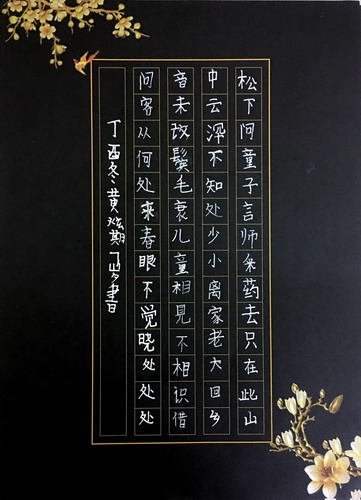 松下问童子言师采药去只在此山
中云深不知处少小离家老大回乡
音未改鬓毛衰儿童相見不相识借
问客从何处来春眠不觉晓处处处
丁酉冬黄炫期 7岁书